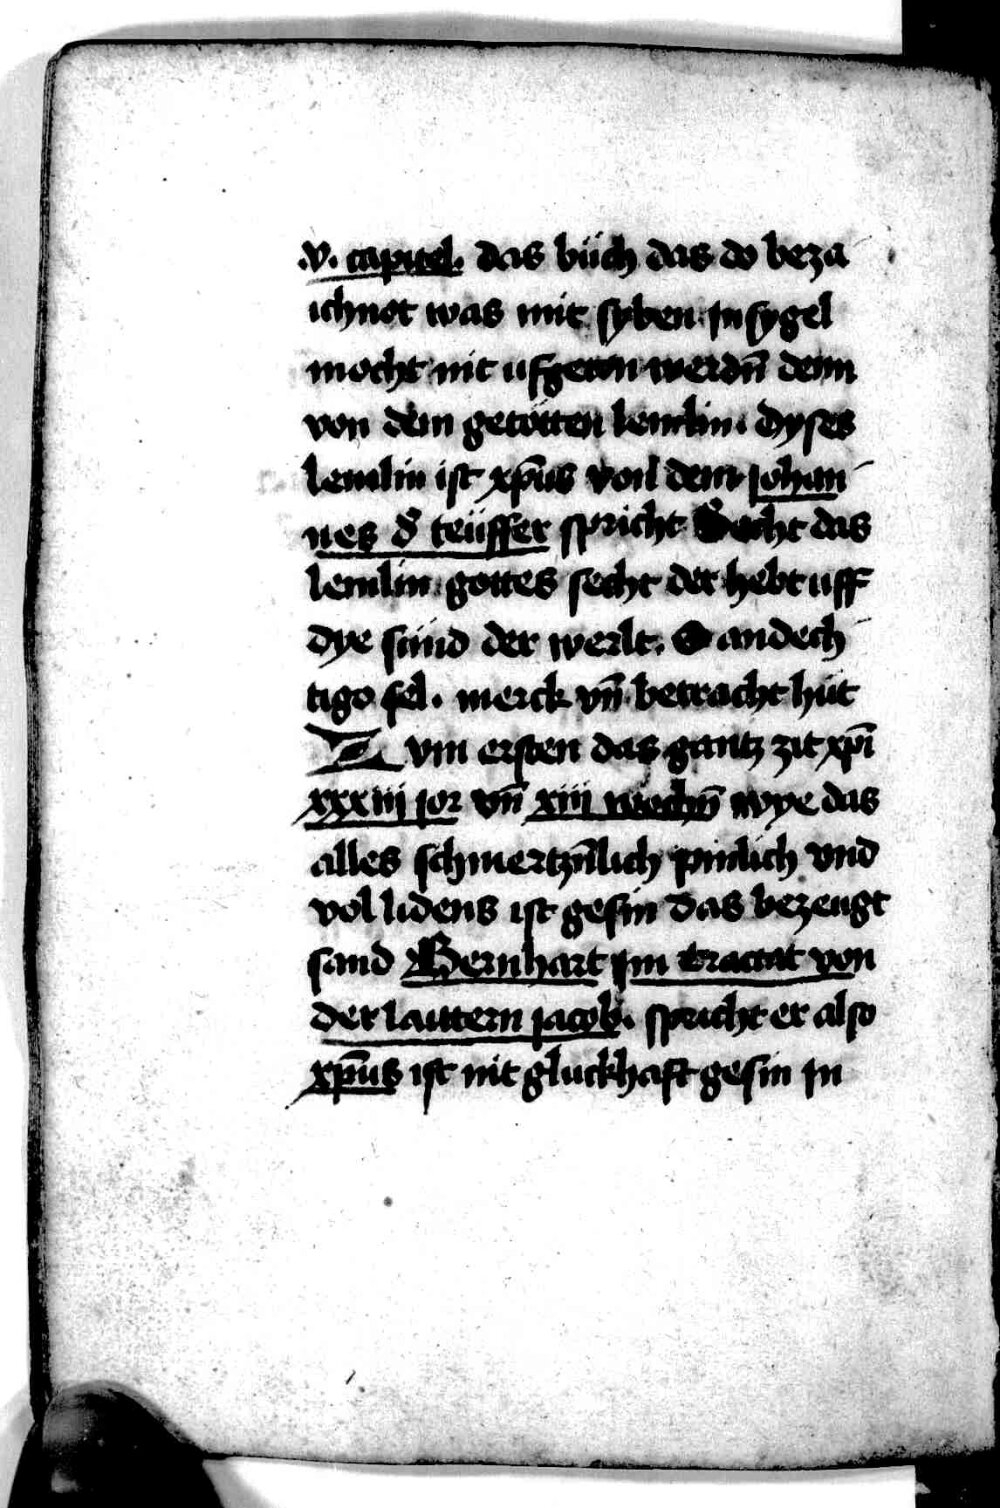 .v. capitel. das büch das do beza
ichnet was mit syben Jnsygel
mocht nit ufgeton werdn̄ denn
von dem getötten lemlin. Dyses
lemlin ist xp̄us von dem johan
nes d̾ teüffer spricht Secht das
lemlin gottes secht der hebt uff
dye sünd der werlt. O andech
tigo sel. merck vn̄ betracht hüt
Zvm ersten das gantz zit xp̄i
xxxiij jor vn̄ xiij wochn̄ wye das
alles schmertzn̄lich pinlich vnd
vol lidens ist gesin das bezeugt
sand Bernhart Jm tractat von
der lauttern jacob. spricht er also
xp̄us ist nit gluckhaft gesin Jn